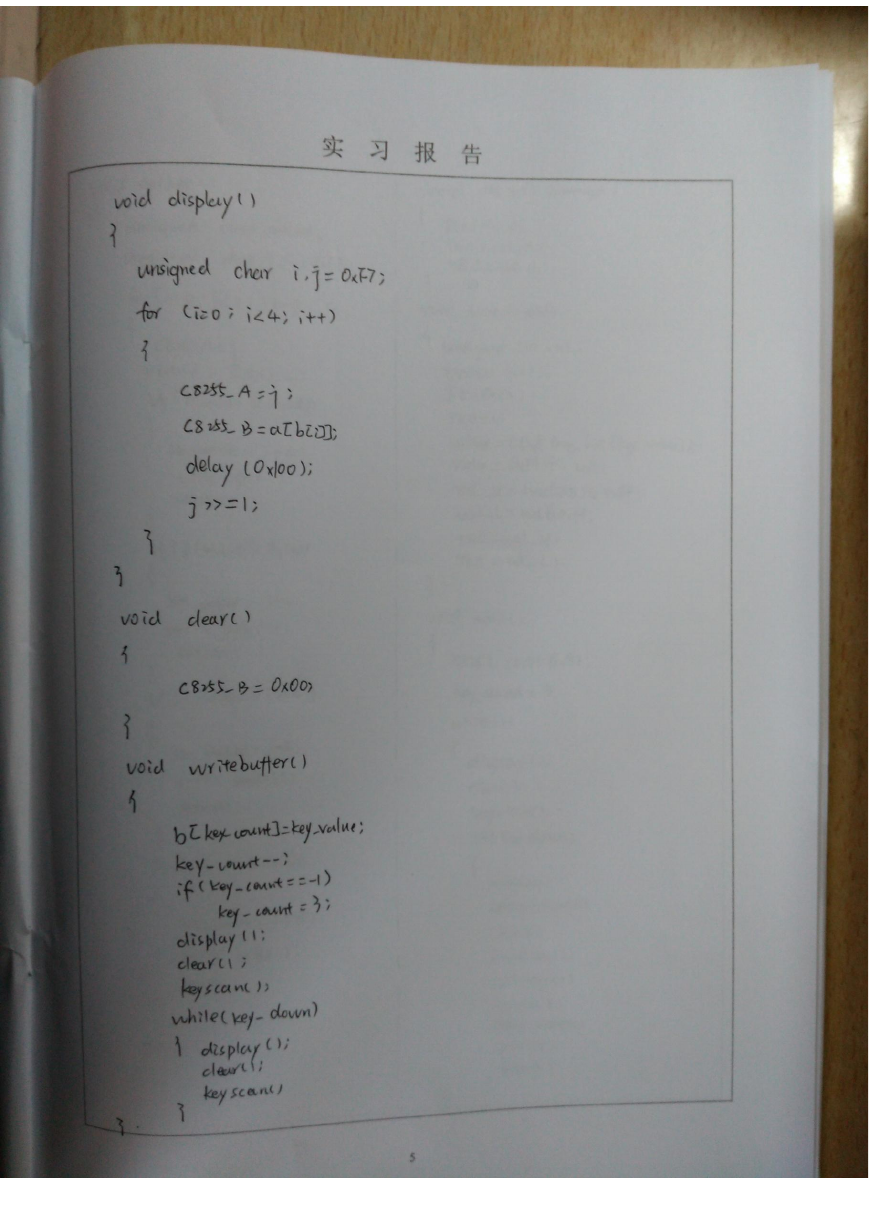 实 习 报 告
void display()
{
unsigned char i,j=0xF7;
for (i=0; i<4; i++)
{
C8255_A=j;
C8255_B=a[b[i]];
delay (0x100);
j>>=1;
}
}
void clear()
{
C8255_B=0x00;
}
void writebuffer()
{
b[key_count]=key_value;
key_count--;
if(key_count==-1)
key_count=3;
display();
clear();
keyscan();
while(key_down)
{ display();
clear();
keyscan()
}
}
5